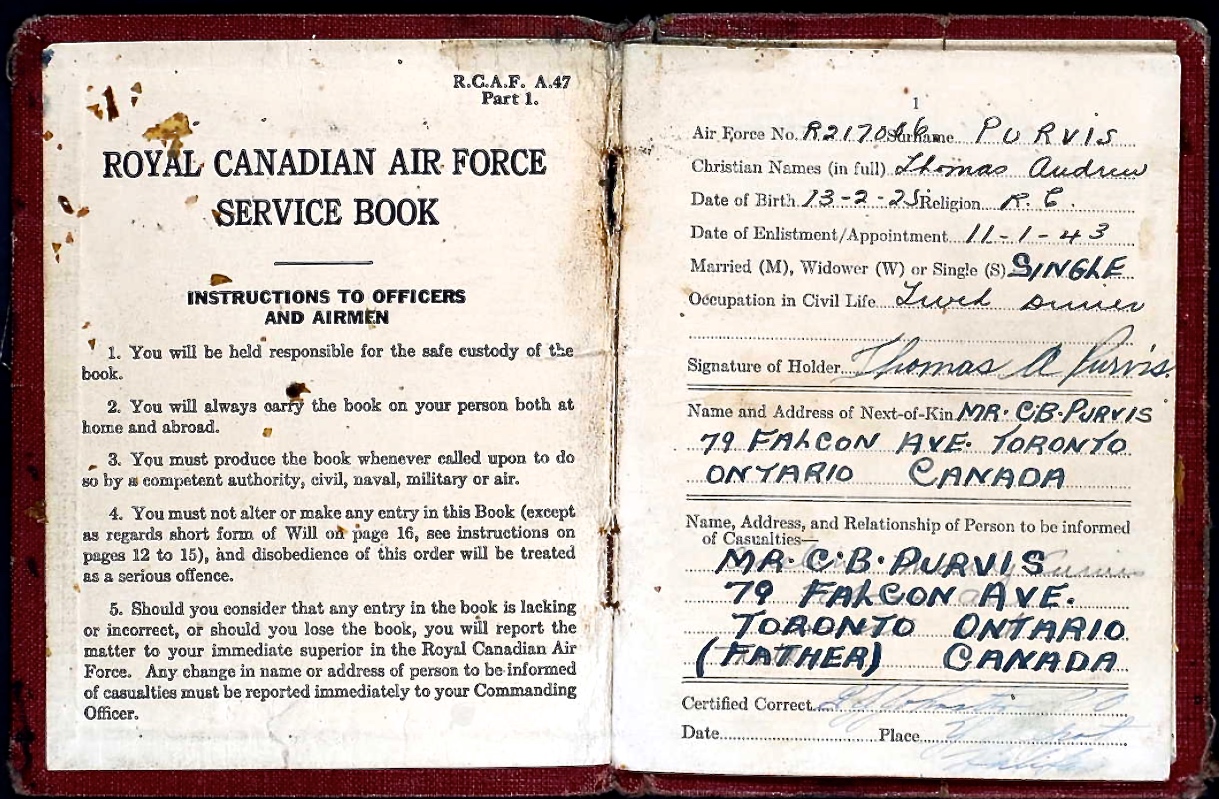 R.C.A.F. A.47
Part 1.
ROYAL CANADIAN AIR FORCE
SERVICE BOOK
INSTRUCTIONS TO OFFICERS
AND AIRMEN
1. You will be held responsible for the safe custody of the
book.
2. You will always carry the book on your person both at
home and abroad.
3. You must produce the book whenever called upon to do
so by a competent authority, civil, naval, military or air.
4. You must not alter or make any entry in this Book (except
as regards short form of Will on page 16, see instructions on
pages 12 to 15), and disobedience of this order will be treated
as a serious offence.
5. Should you consider that any entry in the book is lacking
or incorrect, or should you lose the book, you will report the
matter to your immediate superior in the Royal Canadian Air
Force. Any change in name or address of person to be informed
of casualties must be reported immediately to your Commanding
Officer.
1
Air Force No. Surname PURVIS
Christian Names (in full) Thomas Andrew
Date of Birth 13-2-25 Religion R.C.
Date of Enlistment/Appointment 11-1-43
Married (M), Widower (W) or Single (S) SINGLE
Occupation in Civil Life
Signature of Holder Thomas A Purvis.
Name and Address of Next-of-Kin MR. C.B. PURVIS
79 FALCON AVE. TORONTO
ONTARIO CANADA
Name, Address, and Relationship of Person to be informed
of Casualties—
MR. C.B. PURVIS
79 FALCON AVE.
TORONTO ONTARIO
(FATHER) CANADA
Certified Correct
Date Place